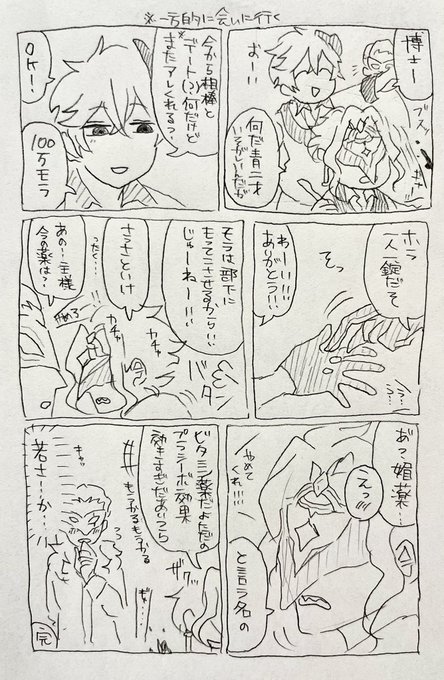 ※一方的に会いに行く
博士ー
おーい
ブスッ
何だ青二才
いそがしいんだが
今から相棒と
※デート(?)何だけど
またアレくれる?
OK!
100万モラ
ホラ
一人一錠だぞ
そっ
わーい!!!
ありがとう!!
モラは部下に
もってこさせるからいい
じゅーねー!!!
さっさといけ
ったく…
あの…主様
今の薬は?
ガチャ
ガチャ
バタン
あ?媚薬…
えっ
やめて
くれ!!!
と言う名の
ビタミン薬だよただの
プラシーボ効果
効きすぎだあいつら
もうかるもうかる
若さ…か…
完